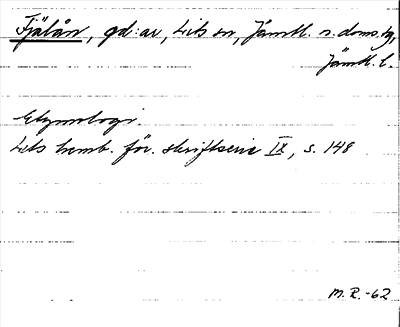 Fjälån, gd:ar, Lits sn, Jämtl. n. doms.hg,
Jämtl. l.
Etymologi.
Lits hemb. för. skriftserie IX, s. 148
M.R.-62